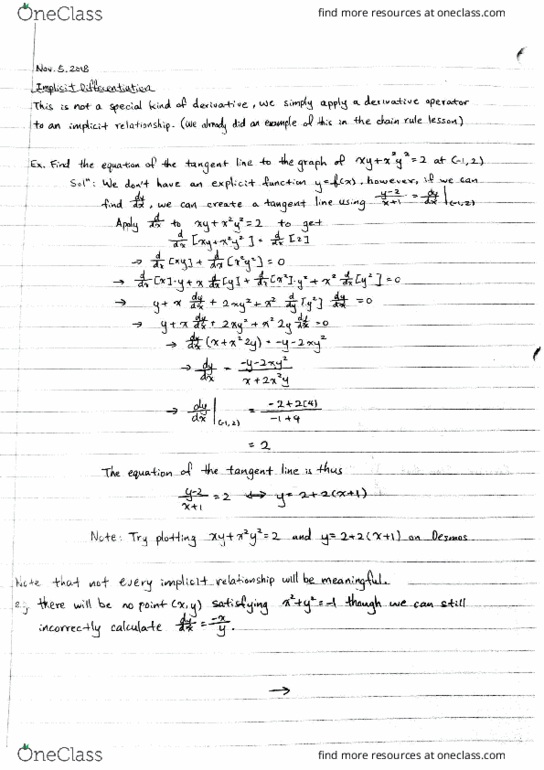 OneClass find more resources at oneclass.com
Nov. 5, 2018
Implicit Differentiation
This is not a special kind of derivative, we simply apply a derivative operator
to an implicit relationship. (We already did an example of this in the chain rule lesson)
Ex. Find the equation of the tangent line to the graph of xy+x²y²=2 at (-1,2)
Solⁿ: We don't have an explicit function y=f(x), however, if we can
find dy/dx, we can create a tangent line using (y-2)/(x+1) = dy/dx|(-1,2)
Apply d/dx to xy+x²y²=2 to get
d/dx [xy+x²y²] = d/dx [2]
→ d/dx [xy] + d/dx [x²y²] = 0
→ d/dx [x]·y + x d/dx [y] + d/dx [x²]·y² + x² d/dx [y²] = 0
→ y + x dy/dx + 2xy² + x² d/dy [y²] dy/dx = 0
→ y + x dy/dx + 2xy² + x² 2y dy/dx = 0
→ dy/dx (x+x²2y) = -y-2xy²
→ dy/dx = (-y-2xy²)/(x+2x²y)
→ dy/dx|(-1,2) = (-2+2(4))/(-1+4)
= 2
The equation of the tangent line is thus
(y-2)/(x+1) = 2 ⟺ y=2+2(x+1)
Note: Try plotting xy+x²y²=2 and y=2+2(x+1) on Desmos.
Note that not every implicit relationship will be meaningful.
there will be no point (x,y) satisfying x²+y²=-1 though we can still
incorrectly calculate dy/dx = -x/y.
→
OneClass find more resources at oneclass.com